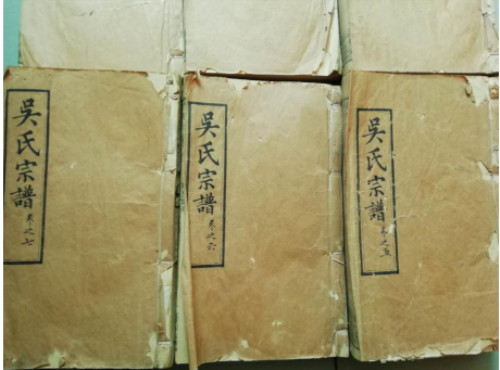 吳氏宗譜 卷之七
吳氏宗譜 卷之六
吳氏宗譜 卷之五